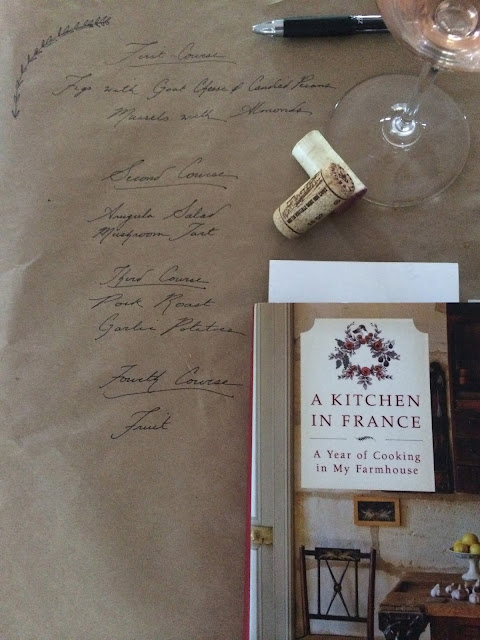 First Course
Figs with Goat Cheese & Candied Pecans
Mussels with Almonds
Second Course
Arugula Salad
Mushroom Tart
Third Course
Pork Roast
Garlic Potatoes
Fourth Course
Fruit
A KITCHEN
IN FRANCE
A Year of Cooking
in My Farmhouse